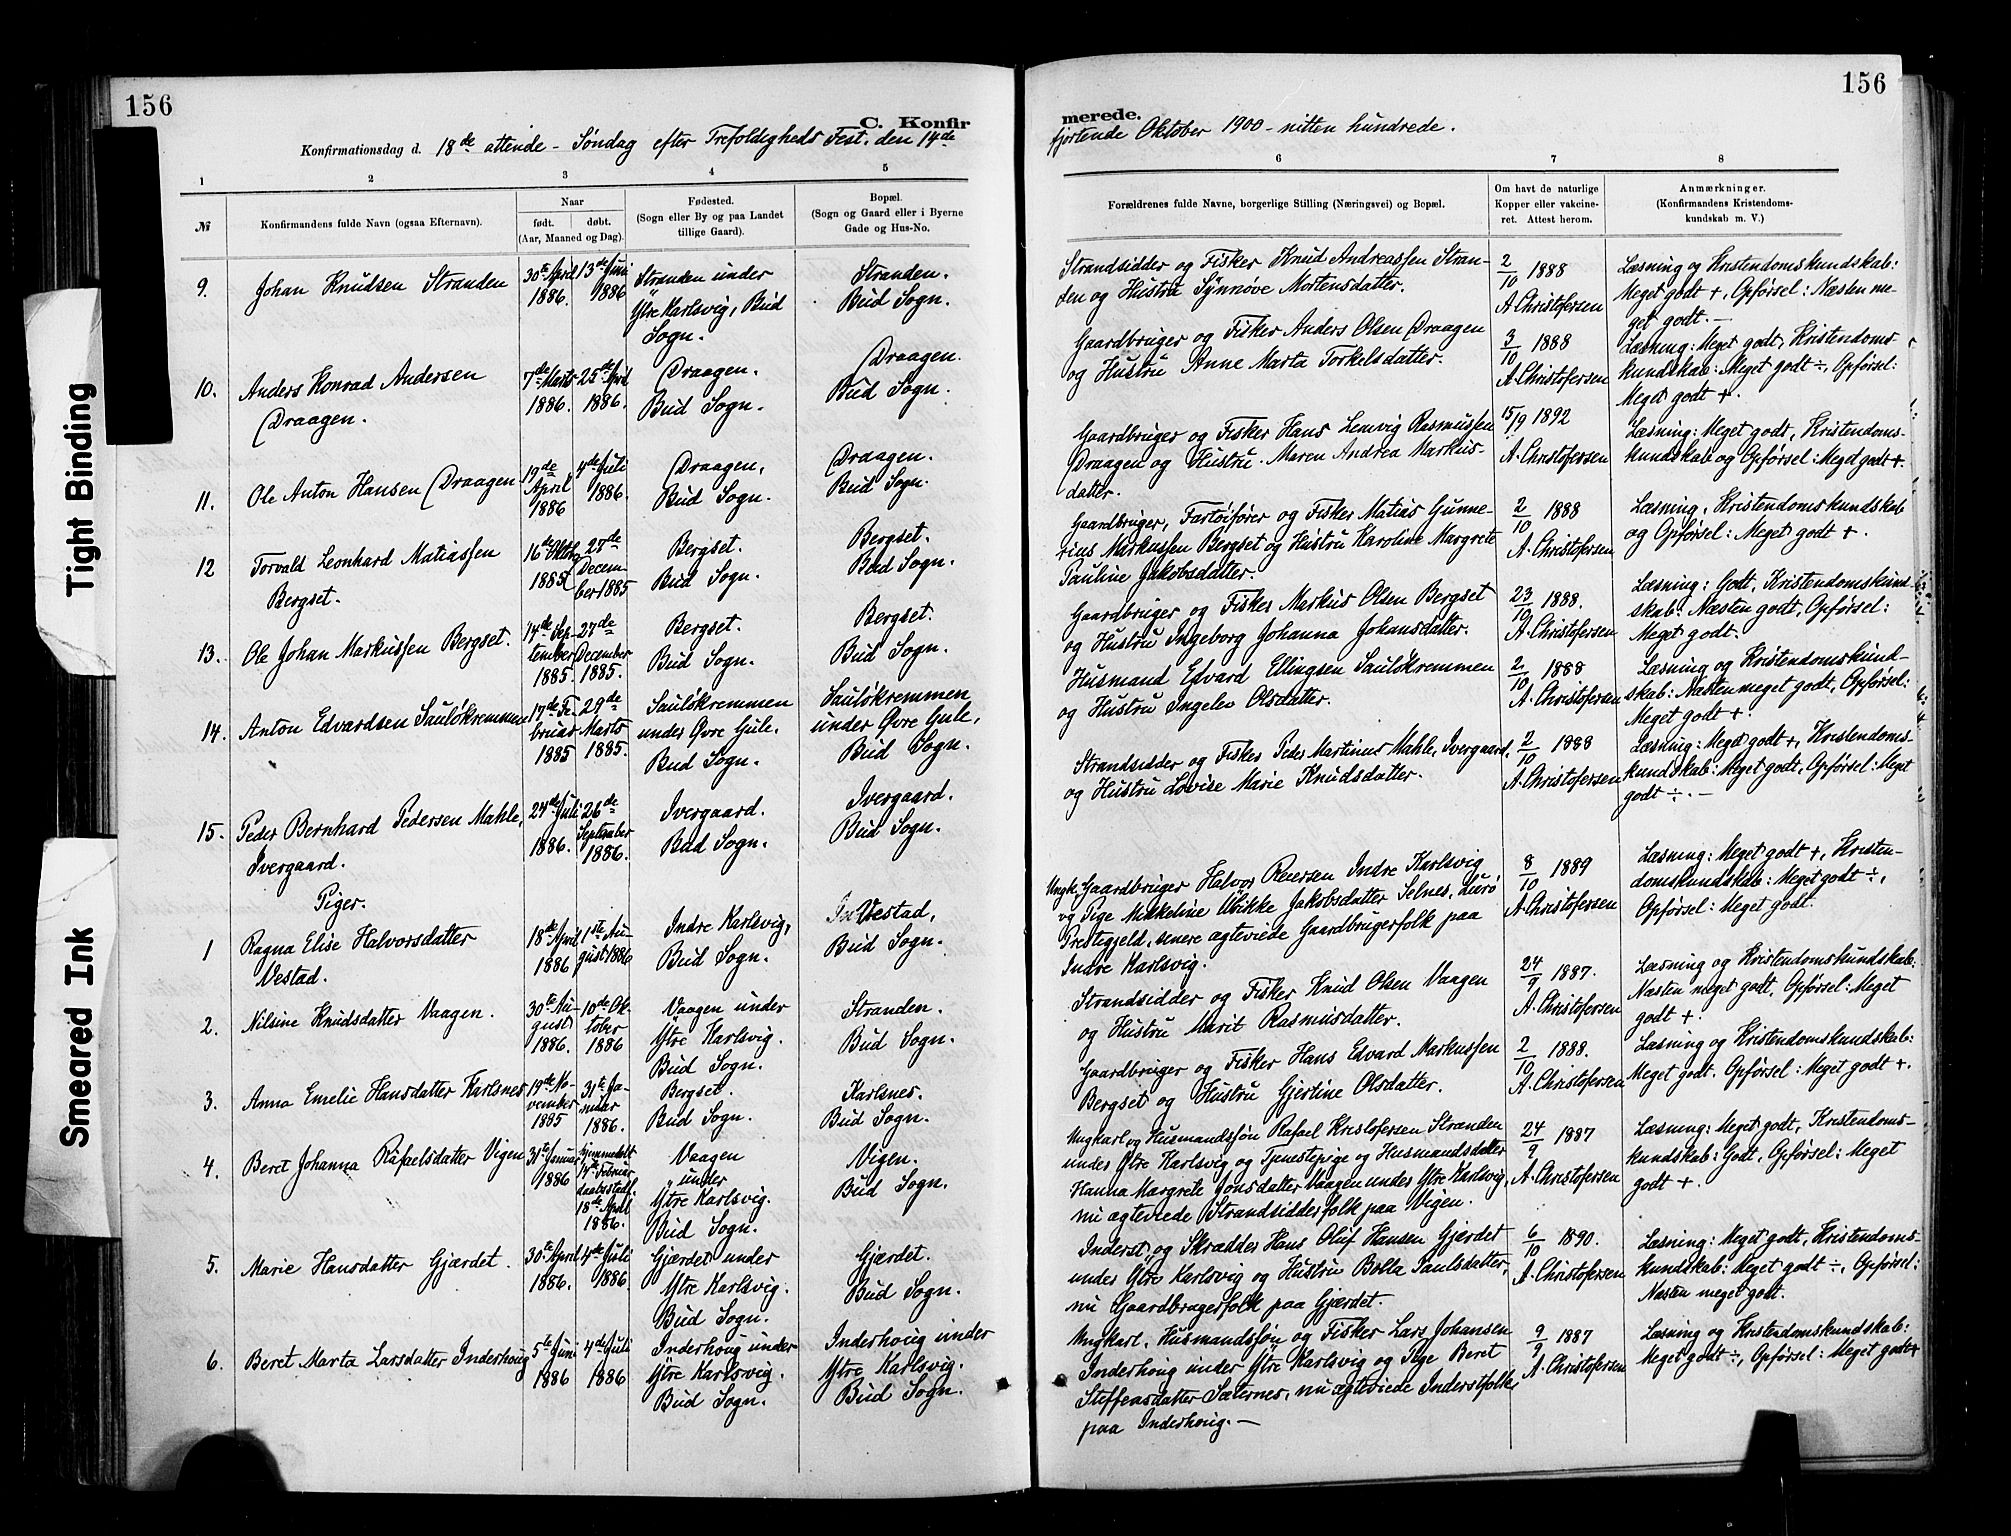 156
156
C. Konfir
merede.
Konfirmationsdag d. 18de attende - Søndag efter Trefoldigheds Fest, den 14de
fjortende Oktober 1900 - nitten hundrede.
1
2
3
4
5
6
7
8
№
Konfirmandens fulde Navn (ogsaa Efternavn).
Naar
født. døbt.
(Aar, Maaned og Dag).
Fødested.
(Sogn eller By og paa Landet
tillige Gaard).
Bopæl.
(Sogn og Gaard eller i Byerne
Gade og Hus-No.
Forældrenes fulde Navne, borgerlige Stilling (Næringsvei) og Bopæl.
Om havt de naturlige
Kopper eller vakcine-
ret. Attest herom.
Anmærkninger.
(Konfirmandens Kristendoms-
kundskab m. V.)
9. Johan Knudsen Stranden
30te April
1886.
13de Juni
1886
Stranden under
Ytre Karlsvig, Bud
Sogn.
Stranden.
Bud Sogn.
Strandsidder og Fisker Knud Andreassen Stran-
den og Hustru Synnøve Mortensdatter.
2/10 1888
A. Christofersen
Læsning og Kristendomskundskab:
Meget godt +, Opførsel: Næsten me-
get godt. —
10. Anders Konrad Andersen
Draagen.
7de Marts
1886.
25de April
1886.
Draagen.
Bud Sogn.
Draagen.
Bud Sogn.
Gaardbruger og Fisker Anders Olsen Draagen
og Hustru Anne Marta Torkelsdatter.
3/10 1888
A. Christofersen
Læsning: Meget godt, Kristendoms
kundskab: Meget godt ÷, Opførsel:
Meget godt +.
11. Ole Anton Hansen Draagen
19de
April
1886
4de Juli
1886.
Draagen,
Bud Sogn.
Draagen.
Bud Sogn.
Gaardbruger og Fisker Hans Lemvig Rasmussen
Draagen og Hustru Maren Andrea Markus-
datter.
15/9 1892
A. Christofersen
Læsning: Meget godt, Kristendoms-
kundskab og Opførsel: Meget godt +.
12 Torvald Leonhard Matiassen
Bergset.
16de Oktbr
1885
28de
Decem-
ber 1885
Bergset.
Bud Sogn.
Bergset.
Bud Sogn.
Gaardbruger, Fartøifører og Fisker Matias Gunne-
rius Markussen Bergset og Hustru Karoline Margrete
Pauline Jakobsdatter.
2/10 1888
A. Christofersen
Læsning, Kristendomskundskab
og Opførsel: Meget godt +.
13. Ole Johan Markussen Bergset.
14de Sep-
tember
1885
27de
December
1885.
Bergset.
Bud Sogn.
Bergset.
Bud Sogn.
Gaardbruger og Fisker Markus Olsen Bergset
og Hustru Ingeborg Johanna Johansdatter.
23/9 1888.
A. Christofersen
Læsning: Godt, Kristendomskund-
skab: Næsten godt, Opførsel:
Meget godt.
14. Anton Edvardsen Sauløkremmen
17de Fe-
bruar
1885
29de
Marts
1885.
Sauløkremmen
under Øvre Gule.
Bud Sogn.
Sauløkremmen
under Øvre Gule,
Bud Sogn.
Husmand Edvard Ellingsen Sauløkremmen
og Hustru Ingelev Olsdatter.
2/10 1888
A. Christofersen
Læsning og Kristendomskund-
skab: Næsten meget godt, Opførsel:
Meget godt +.
15. Peder Bernhard Pedersen Mahle,
Ivergaard.
24de Juli
1886.
26de
September
1886.
Ivergaard.
Bud Sogn.
Ivergaard.
Bud Sogn.
Strandsidder og Fisker Peder Martinus Mahle, Ivergaard,
og Hustru Lovise Marie Knudsdatter.
2/10 1888
A. Christofersen
Læsning: Meget godt +, Kristendoms-
kundskab: Meget godt, Opførsel: Meget
godt ÷. —
Piger.
1 Ragna Elise Halvorsdatter
Vestad.
18de April
1886
1ste Au-
gust 1886
Indre Karlsvig,
Bud Sogn.
Vestad,
Bud Sogn.
Ungk. Gaardbruger Halvor Reiersen Indre Karlsvig
og Pige Mikkeline Ulrikke Jakobsdatter Selnes, Lurø
Prestegjeld, senere ægteviede Gaardbrugerfolk paa
Indre Karlsvig.
8/10 1889
A. Christofersen
Læsning: Meget godt +, Kristen-
domskundskab: Meget godt ÷,
Opførsel: Meget godt.
2. Nilsine Knudsdatter Vaagen.
30te Au-
gust
1886.
10de Ok-
tober
1886
Vaagen under
Ytre Karlsvig.
Bud Sogn.
Stranden.
Bud Sogn.
Strandsidder og Fisker Knud Olsen Vaagen
og Hustru Marit Rasmusdatter.
24/9 1887.
A. Christofersen
Læsning og Kristendomskundskab:
Næsten meget godt, Opførsel: Meget
godt +.
3. Anna Emelie Hansdatter Karlsnes
19de No-
vember
1885
31te Ja-
nuar
1886.
Bergset.
Bud Sogn.
Karlsnes.
Bud Sogn.
Gaardbruger og Fisker Hans Edvard Markussen
Bergset og Hustru Gjertine Olsdatter.
2/10 1888.
A. Christofersen
Læsning og Kristendomskundskab:
Meget godt. Opførsel: Meget godt +.
4. Beret Johanna Rafaelsdatter Vigen
31te Januar
1886
hjemmedøbt
14de Februar
daabsstadf.
18de April
1886.
Vaagen
under
Ytre Karlsvig.
Bud Sogn.
Vigen.
Bud Sogn.
Ungkarl og Husmandssøn Rafael Kristofersen Stranden
under Ytre Karlsvig og Tjenestepige og Husmandsdatter
Hanna Margrete Jonsdatter Vaagen under Ytre Karlsvig,
nu ægteviede Strandsidderfolk paa Vigen.
24/9 1887
A. Christofersen
Læsning: Meget godt, Kristendoms-
kundskab: Godt, Opførsel: Meget
godt +.
5. Marie Hansdatter Gjærdet.
30te April
1886.
4de Juli
1886.
Gjærdet under
Ytre Karlsvig.
Bud Sogn.
Gjærdet.
Bud Sogn.
Inderst og Skrædder Hans Oluf Hansen Gjerdet
under Ytre Karlsvig og Hustru Bolla Paulsdatter,
nu Gaardbrugerfolk paa Gjærdet.
6/10 1890.
A. Christofersen
Læsning: Meget godt, Kristendoms-
kundskab: Meget godt ÷, Opførsel:
Næsten meget godt.
6. Beret Marta Larsdatter Inderhoug
5te Juni
1886
4de Juli
1886
Inderhoug under
Ytre Karlsvig.
Bud Sogn.
Inderhoug under
Ytre Karlsvig.
Bud Sogn.
Ungkarl, Husmandssøn og Fisker Lars Johansen
Inderhoug under Ytre Karlsvig og Pige Beret
Steffensdatter Sælernes, nu ægteviede Inderstfolk
paa Inderhoug. —
9/9 1887
A. Christofersen
Læsning og Kristendomskundskab:
Meget godt ÷, Opførsel: Meget godt +
Tight Binding
Smeared Ink